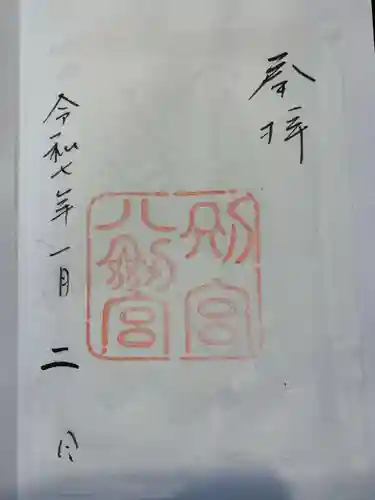 奉拝
別宮
八剱宮
令和七年一月二日